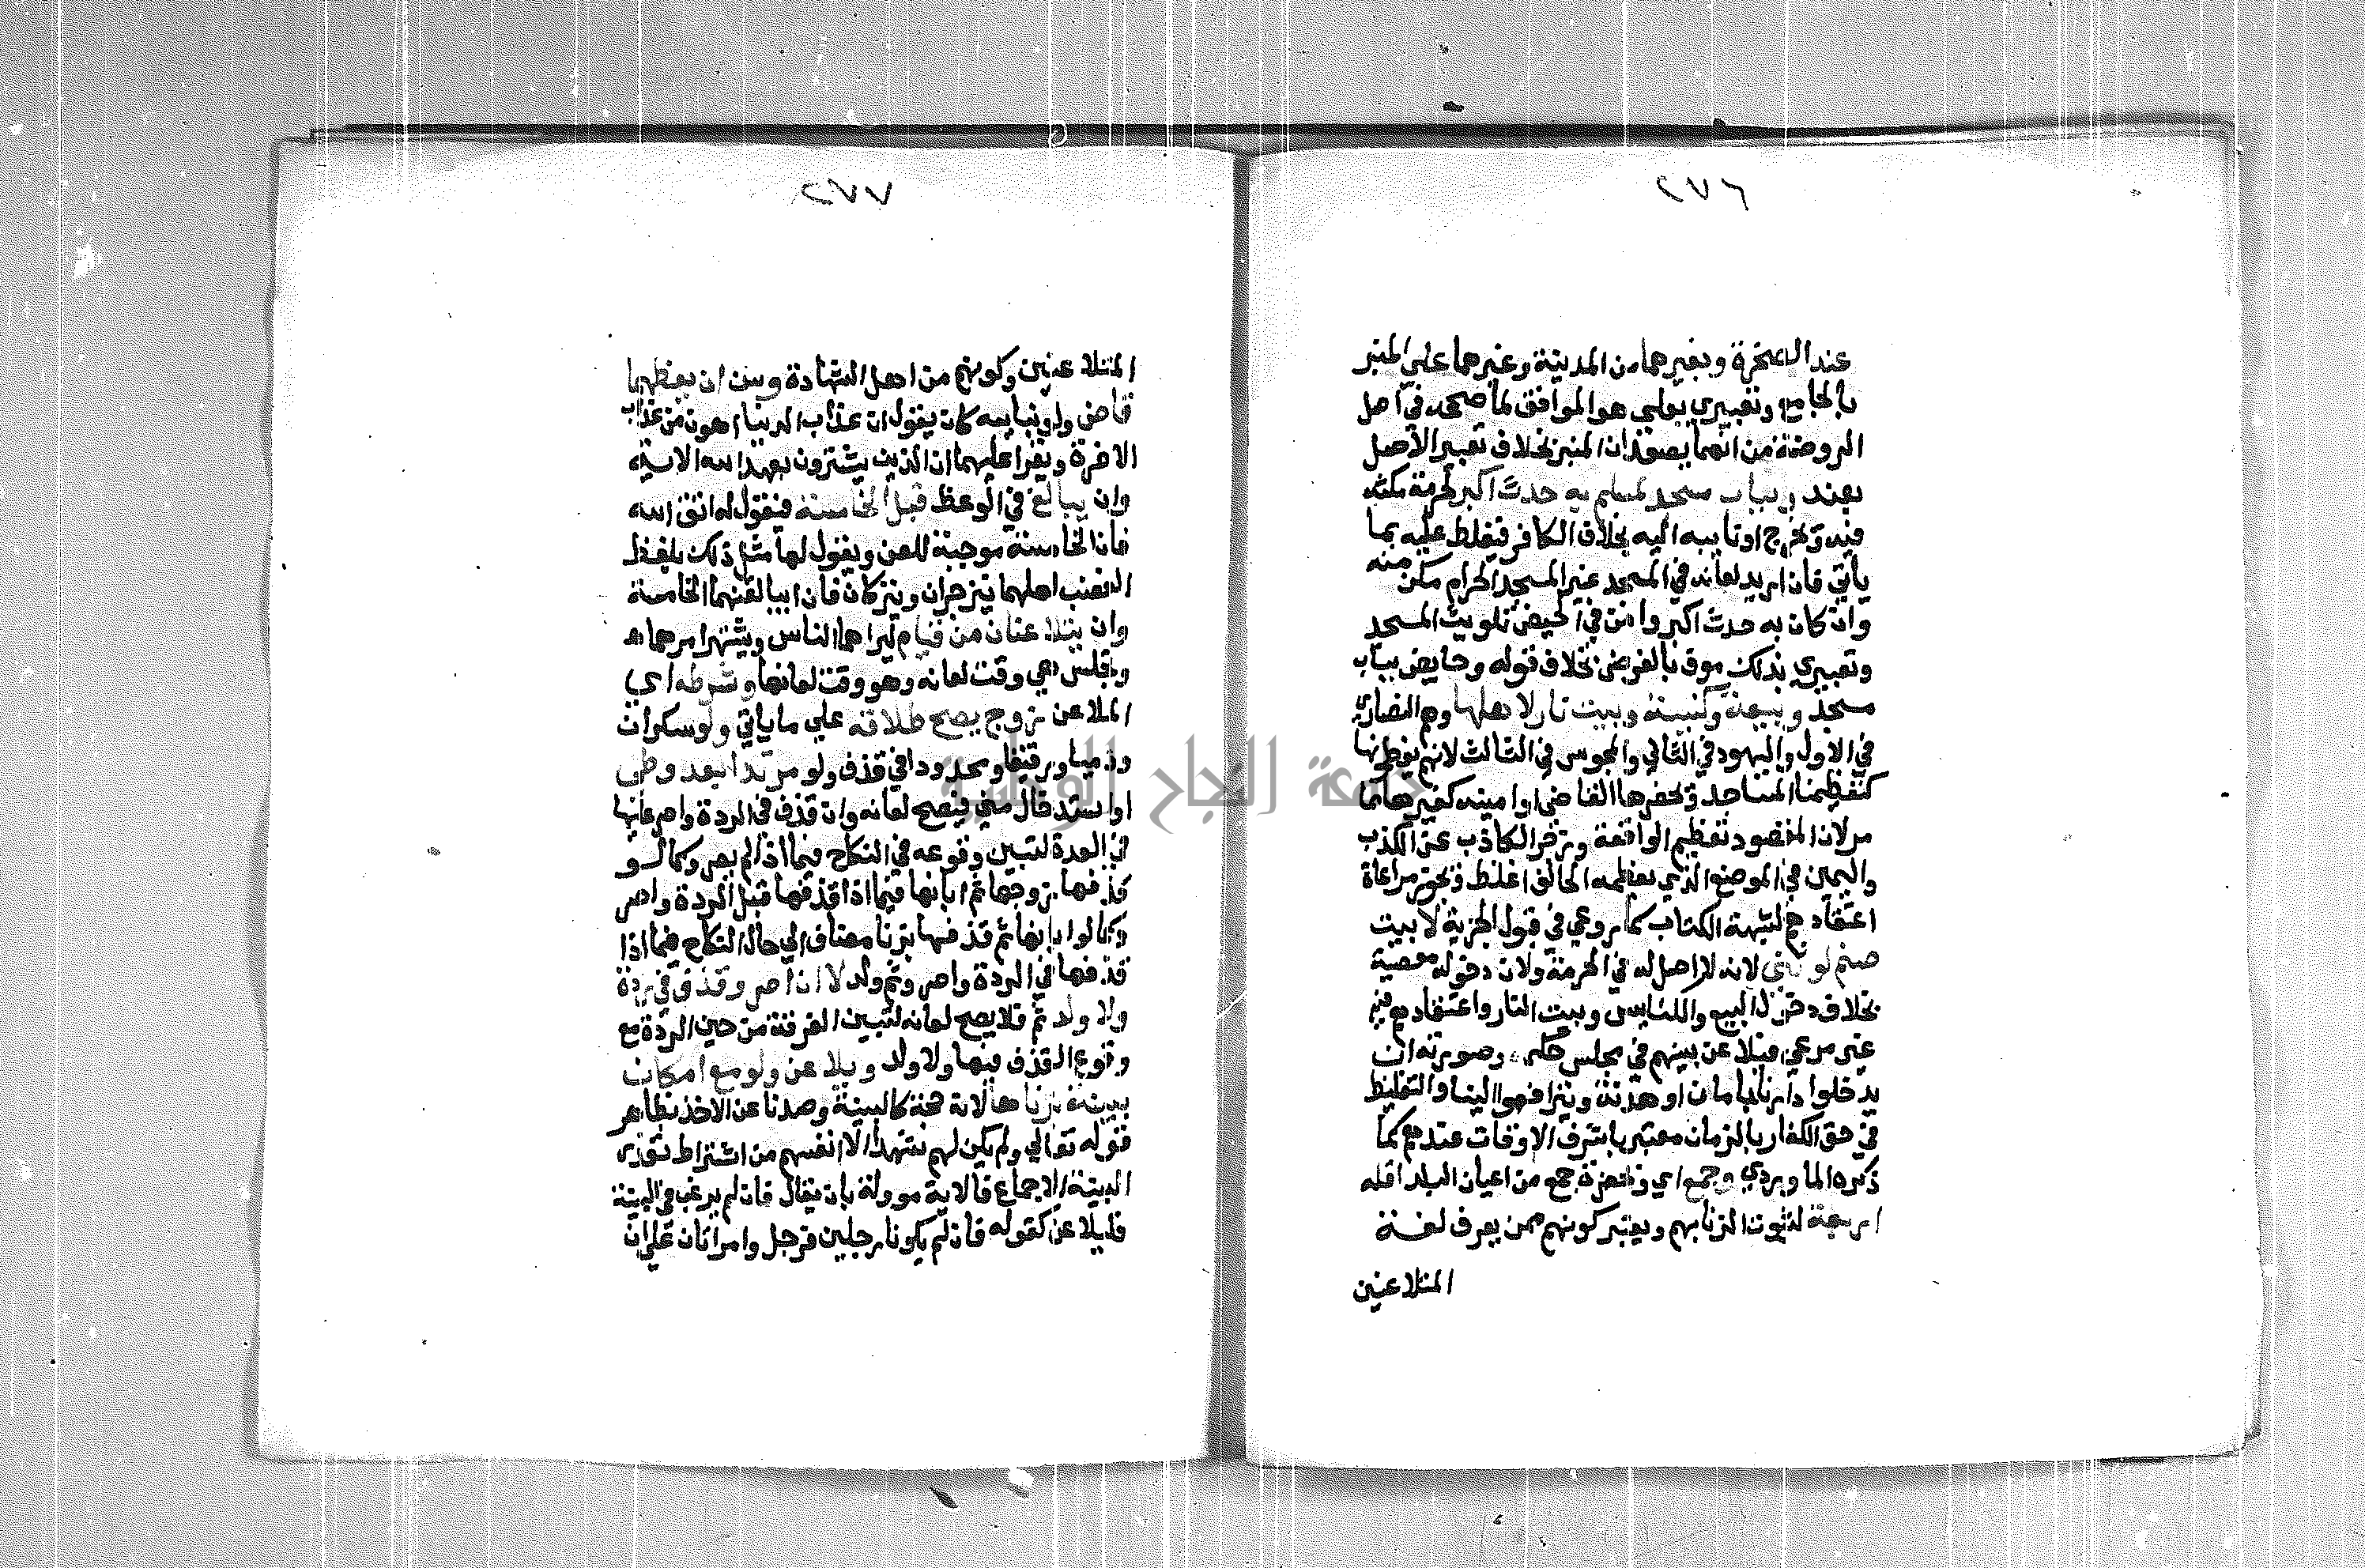 ٢٧٦
عند الصخرة وبغيرها من المدينة وغيرها علي المنبر
بالجامع وتعبيري بعلي هو الموافق لما صححه في اصل
الروضة من انهما يصعدان المنبر بخلاف تعبير الاصل
بعند وبباب مسجد لمسلم به حدث اكبر لحرمة مكثه
فيه ويخرج اونايبه اليه بخلاف الكافر فيغلظ عليه بما
ياتي فان اريد لعانه في المسجد غير المسجد الحرام مكن منه
وان كان به حدث اكبر وامن في الحيض تلويث المسجد
وتعبيري بذلك موف بالغرض بخلاف قوله وحايض بباب
مسجد وبيعة وكنيسة وبيت نار لاهلها وهم النصاري
في الاول واليهود في الثاني والمجوس في الثالث لانهم يعظمونها
كتعظيمنا المساجد ويحضرها القاضي او امينه كغيرها مما
مر لان المقصود تعظيم الواقعة وزجر الكاذب عن الكذب
واليمين في الموضع الذي يعظمه الحالف اغلظ ويجوز مراعاة
اعتقادهم لشبهة الكتاب كما روعي في قبول الجزية لا بيت
صنم لوثني لانه لا اصل له في الحرمة ولان دخوله معصية
بخلاف دخول البيع والكنايس وبيت النار واعتقادهم فيه
غير مرعي فيلاعن بينهم في مجلس حكمه وصورته ان
يدخلوا دارنا بامان او هدنة ويترافعوا الينا والتغليظ
في حق الكفار بالزمان معتبر باشرف الاوقات عندهم كما
ذكره الماوردي وجمع اي وبحضرة جمع من اعيان البلد اقله
اربعة لثبوت الزنا بهم ويعتبر كونهم ممن يعرف لغة
المتلاعنين
٢٧٧
المتلاعنين وكونهم من اهل الشهادة وسن ان يعظهما
قاض ولو بنايبه كان يقول ان عذاب الدنيا اهون من عذاب
الاخرة ويقرا عليهما ان الذين يشترون بعهد الله الاية
وان يبالغ في الوعظ قبل الخامسة فيقول له اتق الله
فان الخامسة موجبة للعن ويقول لها مثل ذلك بلفظ
الغضب لعلهما ينزجران ويتركان فان ابيا لقنهما الخامسة
وان يتلاعنان من قيام ليراهما الناس ويشتهر امرهما
وتجلس هي وقت لعانه وهو وقت لعانها وشرطه اي
الملاعن زوج يصح طلاقه علي ما ياتي ولو سكران
وذميا ورقيقا ومحدودا في قذف ولو مرتدا بعد وطي
او استدخال مني فيصح لعانه وان قذف في الردة واصر عليها
في العدة لتبين وقوعه في النكاح فيما اذا لم يصر وكما لو
قذفها زوجها ثم ابانها فيما اذا قذفها قبل الردة واصر
وكما لو ابانها ثم قذفها بزنا مضاف الي حال النكاح فيما اذا
قذفها في الردة واصر وثم ولد لا ان اصر وقذف في ردة
ولا ولد ثم فلا يصح لعانه لتبين الفرقة من حين الردة مع
وقوع القذف فيها ولا ولد ويلاعن ولو مع امكان
ببينة بزناها لانه حجة كالبينة وصدنا عن الاخذ بظاهر
قوله تعالي ولم يكن لهم شهدا الا انفسهم من اشتراط تعذر
البينة الاجماع فالاية موولة بان يقال فان لم يرغب في البينة
فليلاعن كقوله فان لم يكونا رجلين فرجل وامراتان علي ان
جامعة النجاح الوطنية